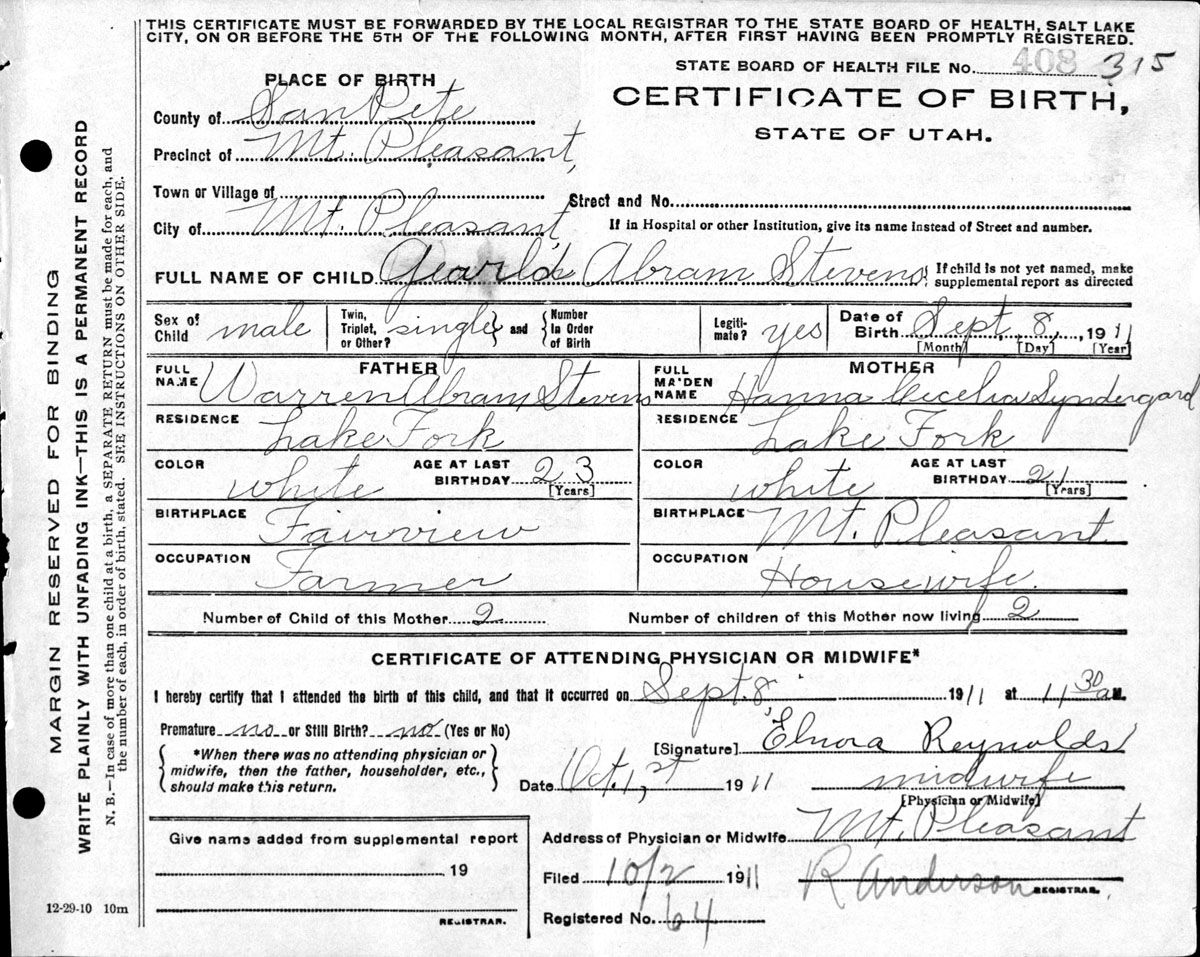 THIS CERTIFICATE MUST BE FORWARDED BY THE LOCAL REGISTRAR TO THE STATE BOARD OF HEALTH, SALT LAKE
CITY, ON OR BEFORE THE 5TH OF THE FOLLOWING MONTH, AFTER FIRST HAVING BEEN PROMPTLY REGISTERED.
STATE BOARD OF HEALTH FILE No. 408 315
CERTIFICATE OF BIRTH,
STATE OF UTAH.
PLACE OF BIRTH
County of San Pete
Precinct of Mt. Pleasant,
Town or Village of
Street and No.
City of Mt. Pleasant,
If in Hospital or other Institution, give its name instead of Street and number.
FULL NAME OF CHILD Gearld Abram Stevens
If child is not yet named, make
supplemental report as directed
Sex of Child male
Twin, Triplet, or Other? single and Number In Order of Birth
Legiti-mate? yes
Date of Birth Sept. 8, 1911
[Month] [Day] [Year]
FATHER
FULL NAME Warren Abram Stevens
RESIDENCE Lake Fork
COLOR white
AGE AT LAST BIRTHDAY 23
[Years]
BIRTHPLACE Fairview
OCCUPATION Farmer
MOTHER
FULL MAIDEN NAME Hanna Cecelia Syndergard
RESIDENCE Lake Fork
COLOR white
AGE AT LAST BIRTHDAY 21
[Years]
BIRTHPLACE Mt. Pleasant
OCCUPATION Housewife.
Number of Child of this Mother 2
Number of children of this Mother now living 2
CERTIFICATE OF ATTENDING PHYSICIAN OR MIDWIFE*
I hereby certify that I attended the birth of this child, and that it occurred on Sept. 8 1911 at 11 30 a M.
Premature no or Still Birth? no (Yes or No)
*When there was no attending physician or
midwife, then the father, householder, etc.,
should make this return.
[Signature] Elnora Reynolds
Date Oct. 1, st 1911
midwife
[Physician or Midwife]
Give name added from supplemental report
19
REGISTRAR.
Address of Physician or Midwife Mt. Pleasant
Filed 10/2 1911
R Anderson REGISTRAR.
Registered No. 64
12-29-10 10m
MARGIN RESERVED FOR BINDING
WRITE PLAINLY WITH UNFADING INK—THIS IS A PERMANENT RECORD
N. B.—In case of more than one child at birth, a SEPARATE RETURN must be made for each, and
the number of each, in order of birth, stated. SEE INSTRUCTIONS ON OTHER SIDE.